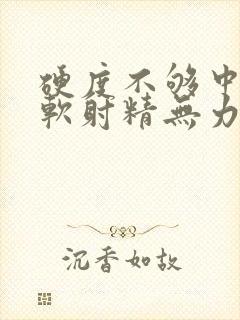 硬度不够中
軟射精無力
沉香如故